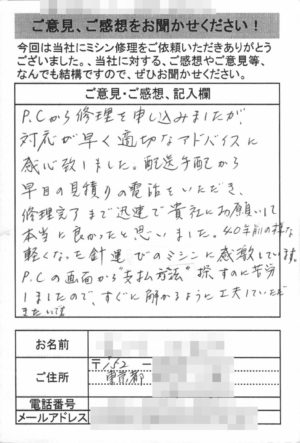 ご意見、ご感想をお聞かせください！
今回は当社にミシン修理をご依頼いただきありがとう
ございました。、当社に対する、ご感想やご意見等、
なんでも結構ですので、ぜひお聞かせください。
ご意見・ご感想、記入欄
P.Cから修理を申し込みましたが
対応が早く適切なアドバイスに
感心致しました。配送手配から
早目の見積りの電話をいただき、
修理完了まで迅速で貴社にお願いして
本当に良かったと思いました。40年前の様な
軽くなった針運びのミシンに感激しています。
P.Cの画面から"支払方法"探すのに苦労
しましたので、すぐに解かるように工夫していただ
きたいです
お名前
ご住所
〒152-
東京都
電話番号
メールアドレス